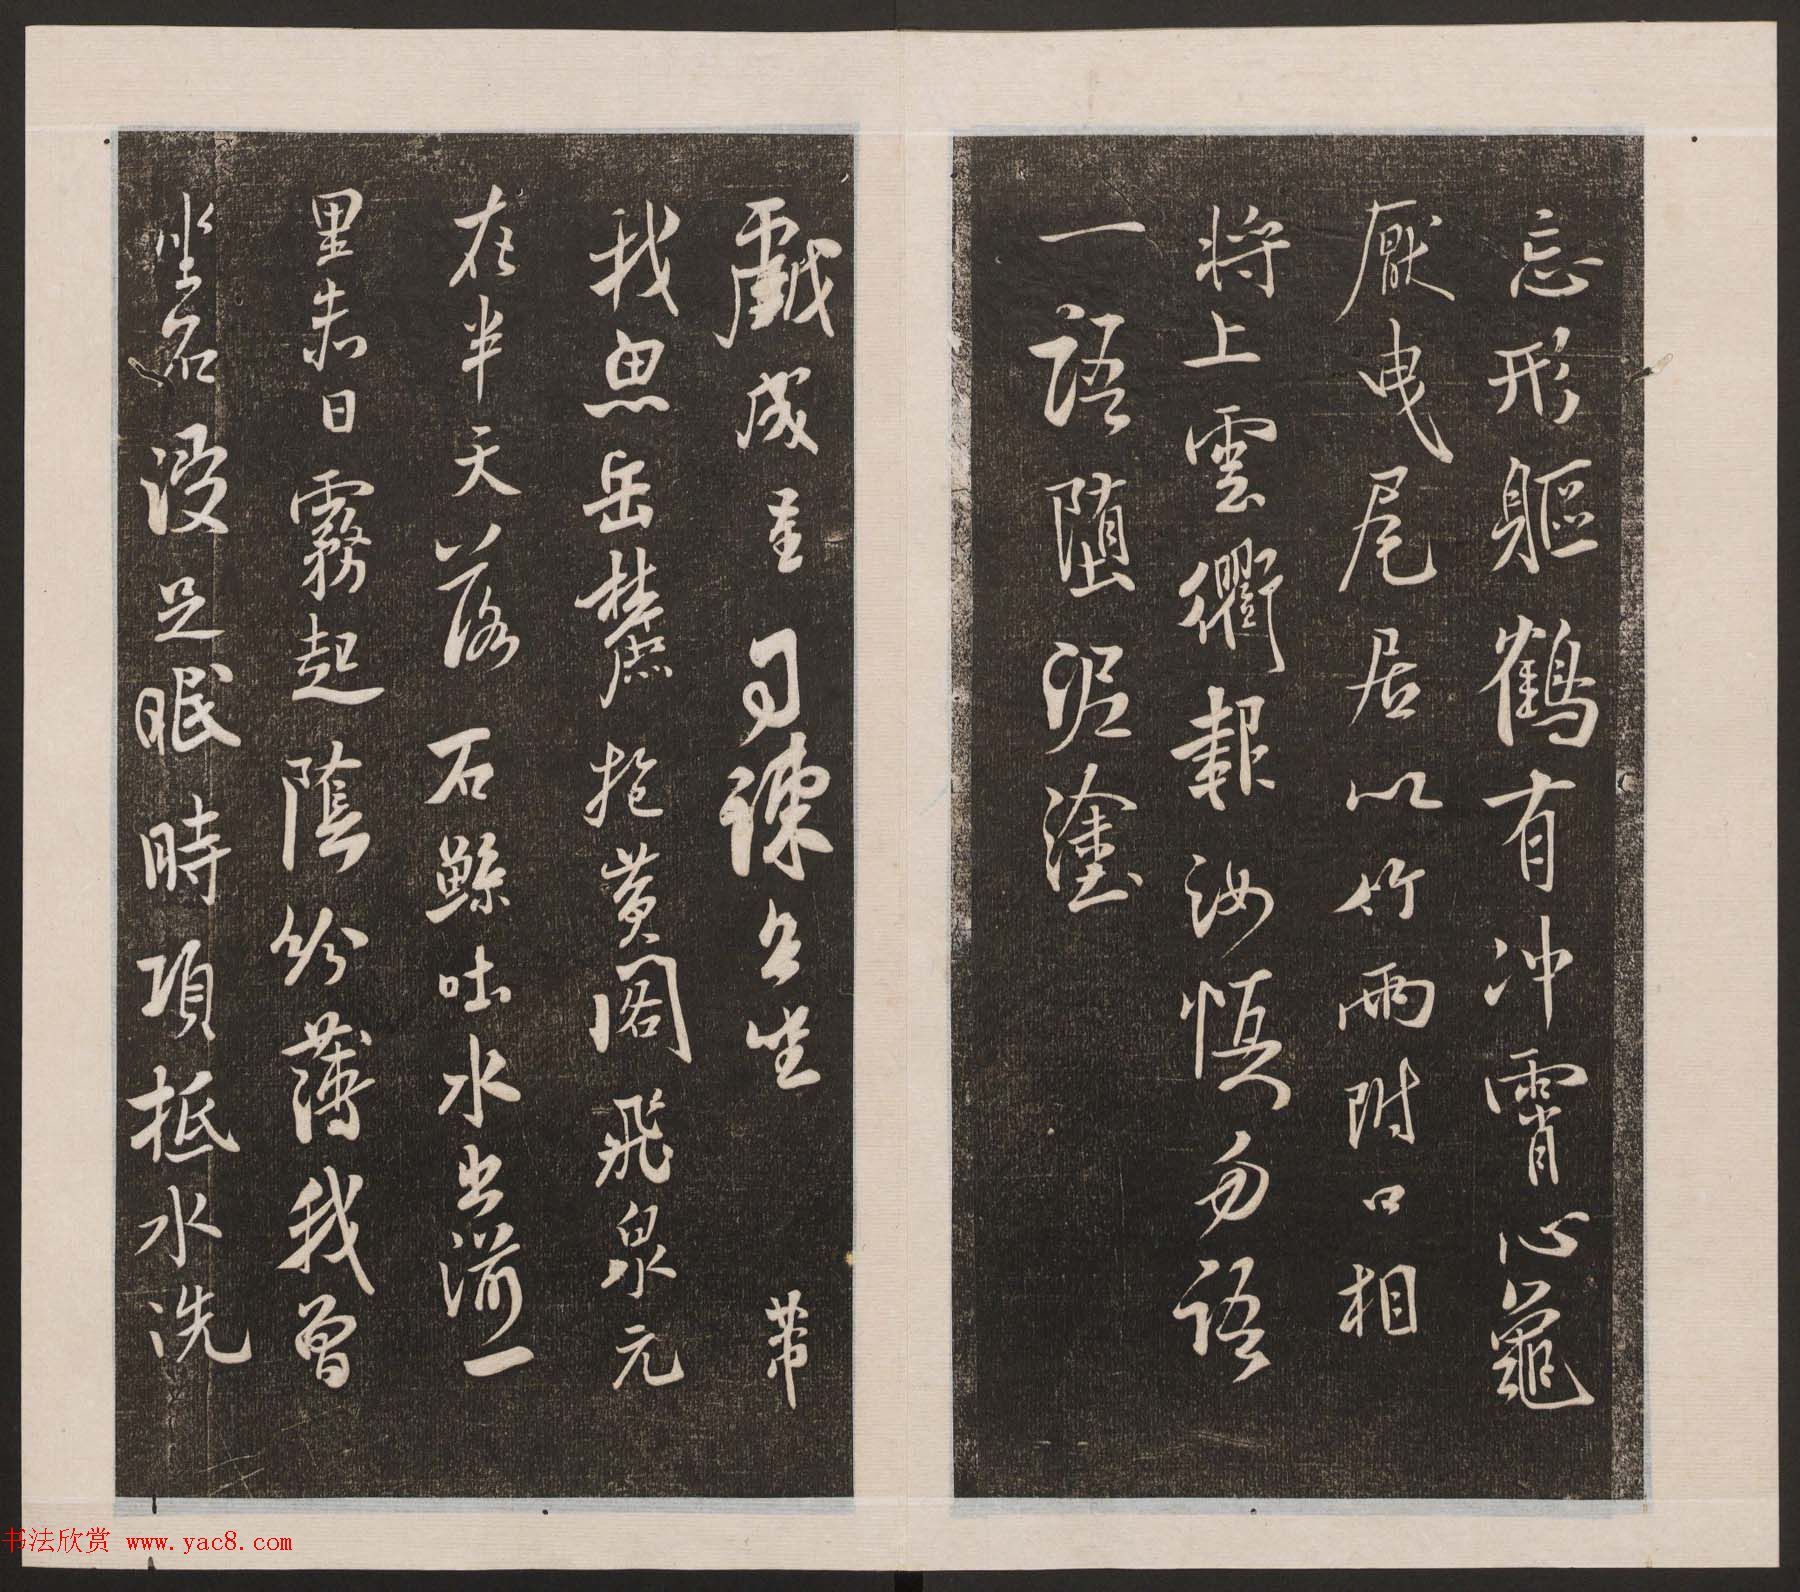 忘形軀鶴有冲霄心龜
厭曳尾居以竹兩附口相
將上雲衢報汝慎勿語
一語墮泥塗
戲成呈司諫台坐 芾
我思岳麓抱黄閣飛泉元
在半天落石鯨吐水出湔一
里赤日霧起陰紛薄我曾
坐石浸足眠時項抵水洗
书法欣赏 www.yac8.com